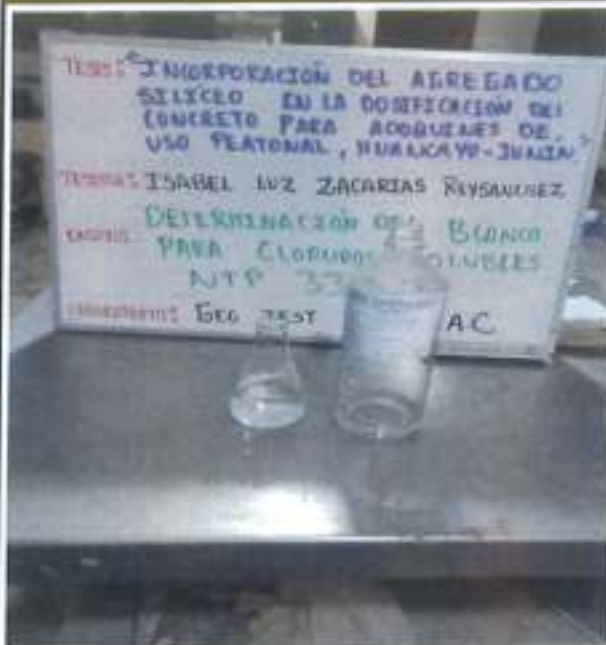 TESIS: "INCORPORACIÓN DEL AGREGADO
SILÍCEO EN LA DOSIFICACIÓN DEL
CONCRETO PARA ADOQUINES DE
USO PEATONAL, HUANCAYO-JUNIN"
TESISTA: ISABEL LUZ ZACARIAS REYSANCHEZ
ENSAYO: DETERMINACIÓN BLANCO
PARA CLORUROS SOLUBLES
NTP 33
LABORATORIO: GEO TEST AC